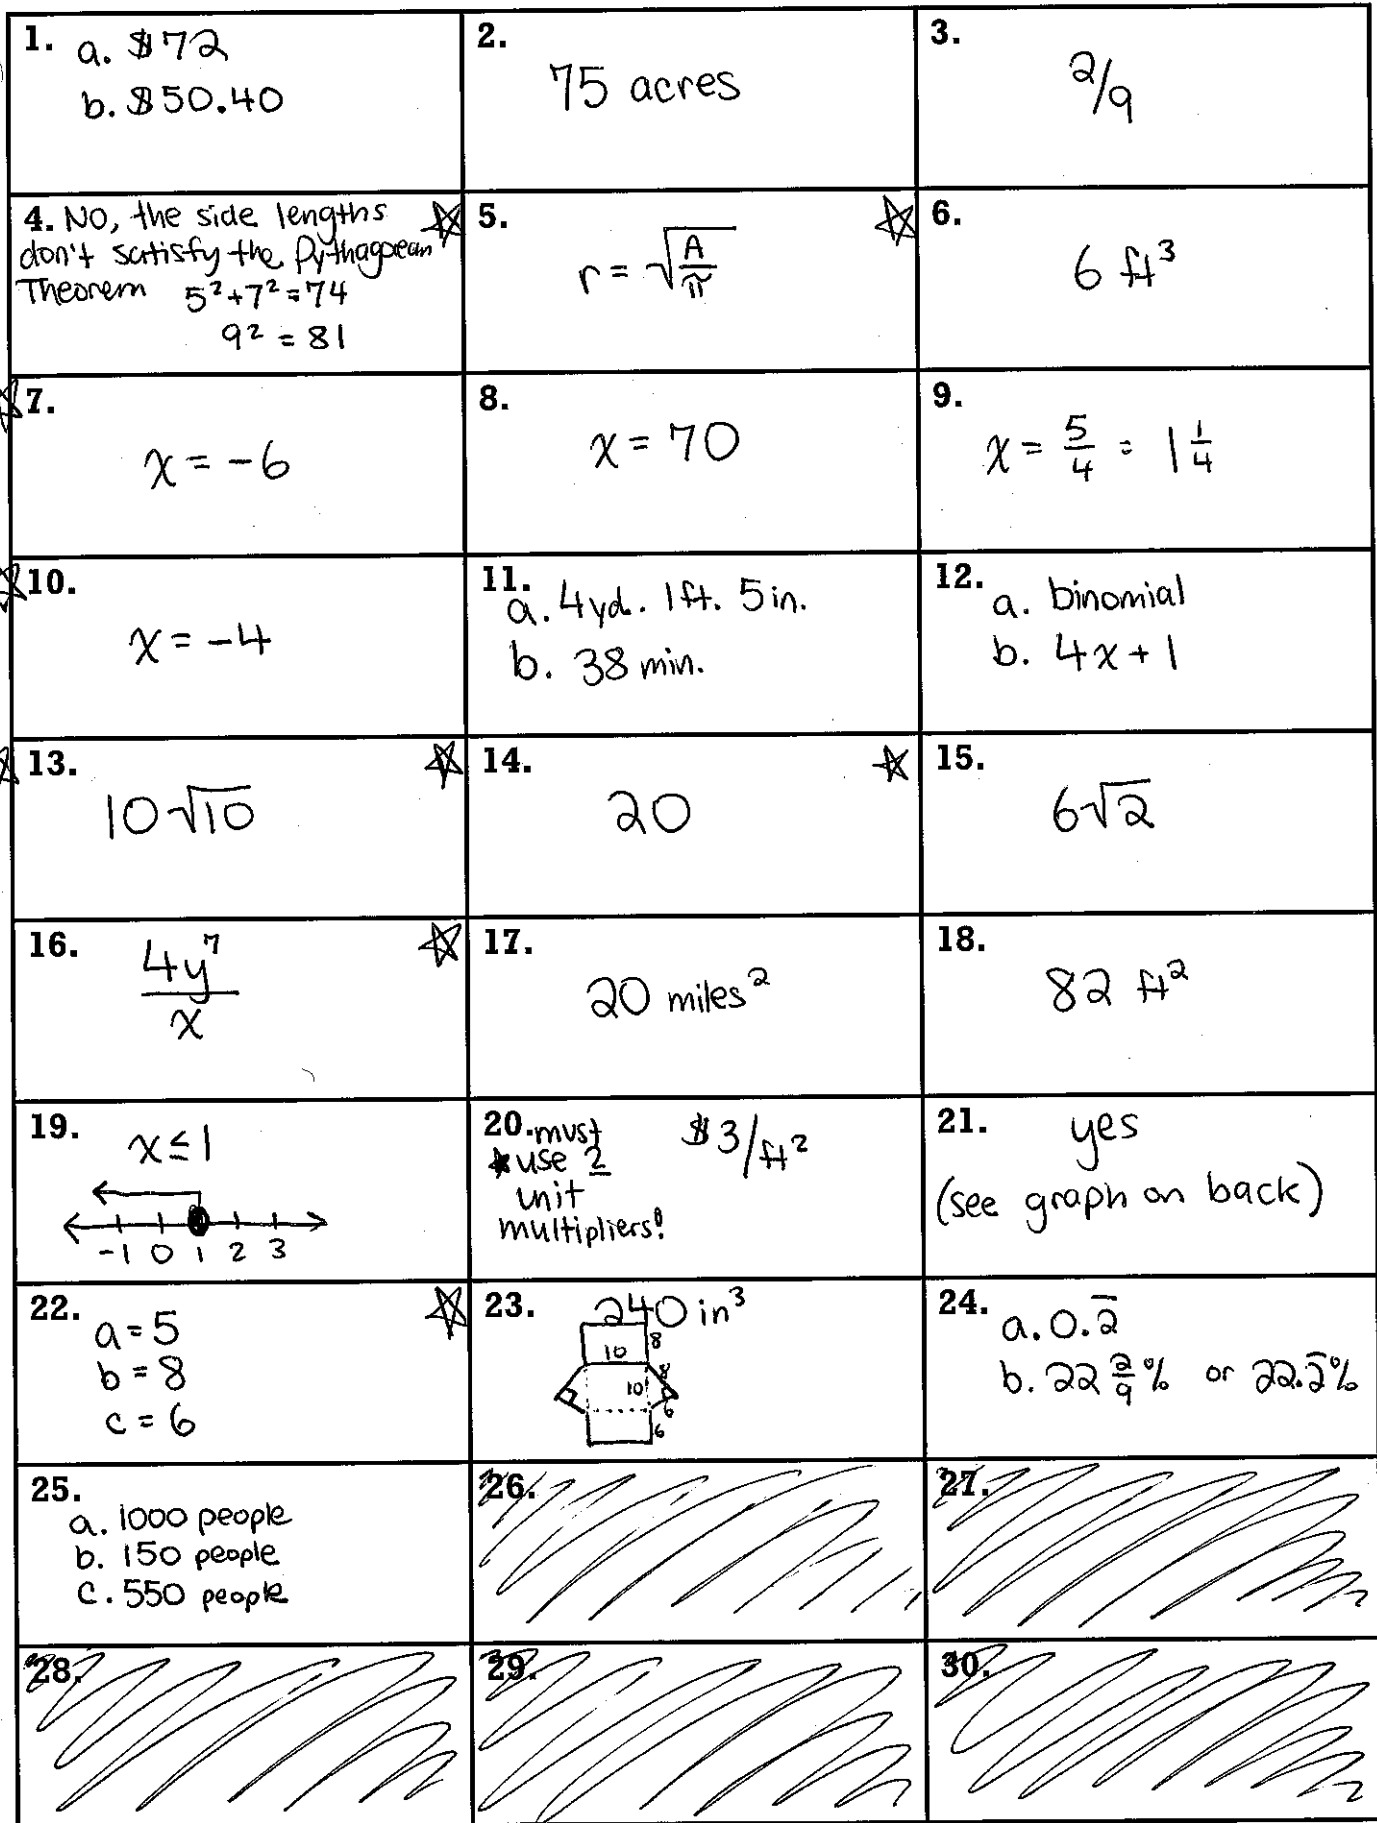 1. a. $72
b. $50.40
2.
75 acres
3.
2/9
4. No, the side lengths
don't satisfy the Pythagorean
Theorem 5²+7²=74
9² = 81
5.
r = √(A/π)
6.
6 ft³
7.
x = -6
8.
x = 70
9.
x = 5/4 = 1 1/4
10.
x = -4
11.
a. 4yd. 1ft. 5in.
b. 38 min.
12.
a. binomial
b. 4x + 1
13.
10√10
14.
20
15.
6√2
16.
4y⁷/x
17.
20 miles²
18.
82 ft²
19.
x ≤ 1
-1 0 1 2 3
20. must $3/ft²
use 2
unit
multipliers!
21.
yes
(see graph on back)
22.
a = 5
b = 8
c = 6
23. 240 in³
10 8
8
10
6
6
24.
a. 0.2̅
b. 22 2/9 % or 22.2̅%
25.
a. 1000 people
b. 150 people
c. 550 people
26.
27.
28.
29.
30.